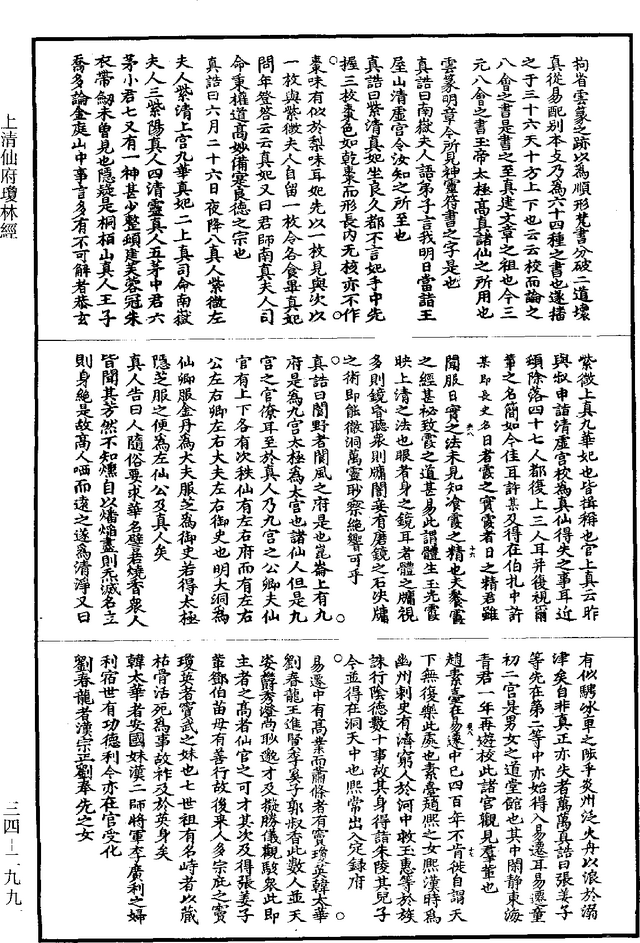 拘省雲篆之跡以為順形梵書分破二道壞
真從易配別本支乃為六十四種之書也遂播
之于三十六天十方上下也云云校而論之
八會之書是書之至真建文章之祖也今三
元八會之書玉帝太極高真諸仙之所用也
雲篆明章今所見神靈符書之字是也
真誥曰南嶽夫人語弟子言我明日當詣王
屋山清虛宮令汝知之所至也
真誥曰紫清真妃坐良久都不言妃手中先
握三枚棗色如乾棗而形長內无核亦不作
棗味有似於梨味耳妃先以一枚見與次以
一枚與紫微夫人自留一枚令各食畢真妃
問年登答云云真妃又曰君師南真夫人司
命秉權道高妙備寔良德之宗也
真誥曰六月二十六日夜降八真人紫微左
夫人紫清上宮九華真妃二上真司命南嶽
夫人三紫陽真人四清靈真人五茅中君六
茅小君七又有一神甚少整頓建芙蓉冠朱
衣帶劒未曾見也隱殘是桐栢山真人王子
喬多論金庭山中事言多有不可解者恭玄
紫微上真九華妃也皆揖稱也官上真云昨
與叔申詣清虛宮校為真仙得失之事耳近
頓除落四十七人都復上三人耳并復視爾
輩之名簡如今佳耳許某乃得在伯札中許
某即長史名日者霞之實霞者日之精君雖
聞服日實之法未見知飡霞之精也夫餐霞
之經甚祕致霞之道甚易此謂體生玉光霞
映上清之法也眼者身之鏡耳者體之牖視
多則鏡昏聽衆則牖閉妾有磨鏡之石決牖
之術即能徹洞萬靈眇察絕響可乎
真誥曰閬野者閬風之府是也崑崙上有九
府是為九宮太極為太宮也諸仙人但是九
宮之官僚耳至於真人乃九宮之公卿夫仙
官有上下各有次秩仙有左右府而有左右
公左右卿左右大夫左右御史也明大洞為
仙卿服金丹為大夫服芝為御史若得太極
隱芝服之便為左仙公及真人矣
真人告曰人隨俗要求華名譬若燒香衆人
皆聞其芳然不知燻自以燔燼盡則炁滅名立
則身絕是故高人哂而遠之遂為清淨又曰
有似騁冰車之陟乎炎州泛火舟以浪於溺
津矣自非真正亦失者萬萬真誥曰張姜子
等先在第二等中亦始得入易遷耳易遷童
初二宮是男女之道堂館也其中閑靜東海
青君一年再遊校此諸宮觀見羣輩也
趙素臺在易遷中已四百年不肯徙自謂天
下無復樂此處也素臺趙熙之女熙漢時為
幽州刺史有濟窮人於河中救王惠等於族
誅行陰德數十事故其身得詣朱陵其兒子
今並得在洞天中也熙常出入定錄府
易遷中有高業而蕭條者有竇瓊英韓太華
劉春龍王進賢李奚子郭叔香此數人並天
姿鬱秀澄尚眇邈才及擬勝儀觀駭衆此即
主者之高者仙官之可才其次及得張姜子
輩鄧伯苗母有善行故後來人多宗庇之竇
瓊英者竇武之妹也七世祖有名峙者以葴
枯骨活死為事故祚及於英身矣
韓太華者安國妹漢二師將軍李廣利之婦
利宿世有功德利今亦在官受化
劉春龍者漢宗正劉奉先之女
上清仙府瓊林經
三四－二九九